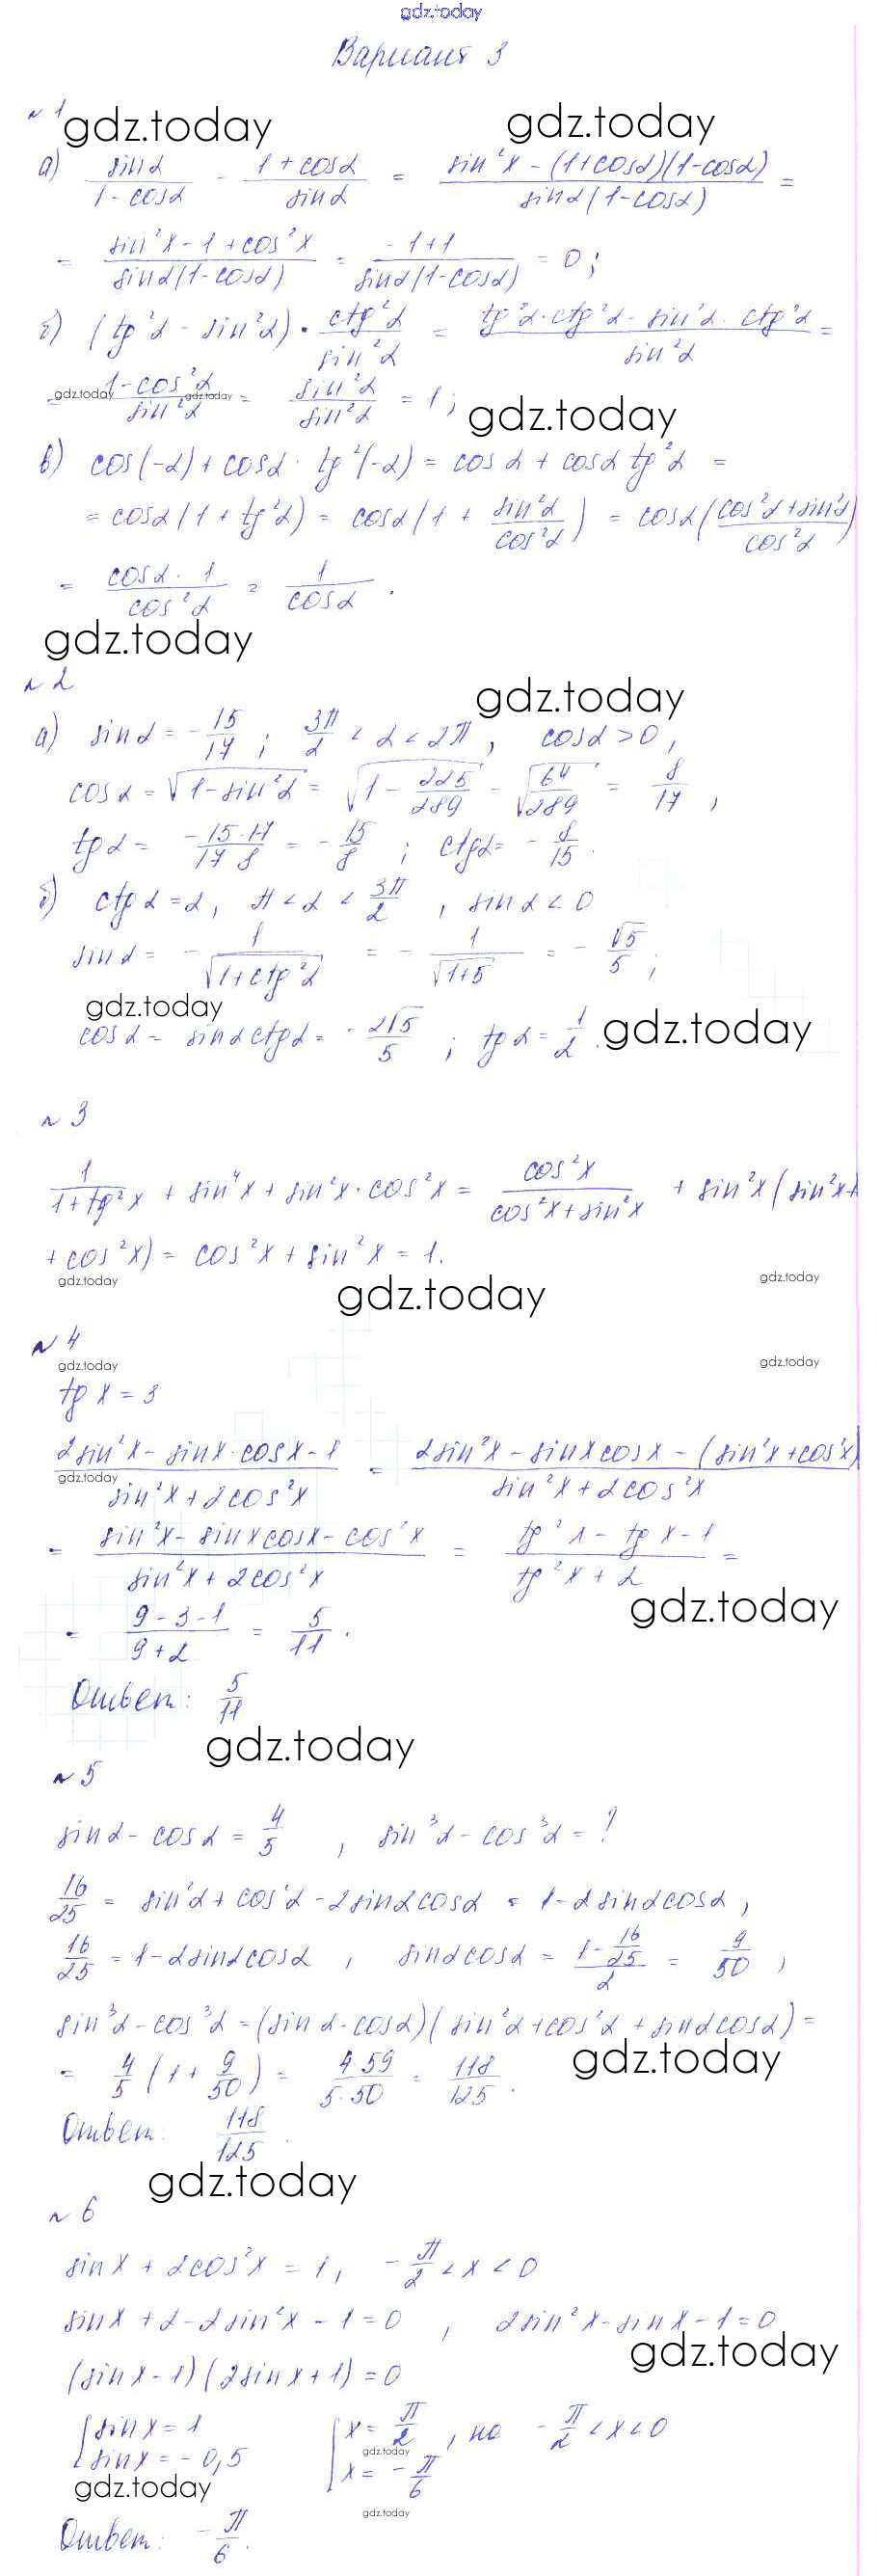 gdz.today
Вариант 3
№1
gdz.today gdz.today
а) sinα/(1-cosα) - (1+cosα)/sinα = (sin²x - (1+cosα)(1-cosα))/(sinα(1-cosα)) =
= (sin²x - 1 + cos²x)/(sinα(1-cosα)) = (-1+1)/(sinα(1-cosα)) = 0;
б) (tg²α - sin²α) · ctg²α/sin²α = (tg²α·ctg²α - sin²α·ctg²α)/sin²α =
= (1-cos²α)/sin²α = sin²α/sin²α = 1;
gdz.today gdz.today gdz.today
в) cos(-α) + cosα · tg²(-α) = cosα + cosα tg²α =
= cosα(1 + tg²α) = cosα(1 + sin²α/cos²α) = cosα((cos²α+sin²α)/cos²α)
= (cosα · 1)/cos²α = 1/cosα.
gdz.today
№2
gdz.today
а) sinα = -15/17; 3π/2 < α < 2π, cosα > 0,
cosα = √(1-sin²α) = √(1 - 225/289) = √(64/289) = 8/17,
tgα = -(15·17)/(17·8) = -15/8; ctgα = -8/15.
б) ctgα = 2, π < α < 3π/2, sinα < 0
sinα = -1/√(1+ctg²α) = -1/√(1+5) = -√5/5;
gdz.today
cosα = sinα ctgα = -2√5/5; tgα = 1/2.
gdz.today
№3
1/(1+tg²x) + sin⁴x + sin²x·cos²x = cos²x/(cos²x+sin²x) + sin²x(sin²x+
+cos²x) = cos²x + sin²x = 1.
gdz.today gdz.today gdz.today
№4
gdz.today gdz.today
tg x = 3
(2sin²x - sinx·cosx - 1)/(sin²x + 2cos²x) = (2sin²x - sinx cosx - (sin²x+cos²x))/(sin²x + 2cos²x)
gdz.today
= (sin²x - sinx cosx - cos²x)/(sin²x + 2cos²x) = (tg²x - tg x - 1)/(tg²x + 2) =
gdz.today
= (9-3-1)/(9+2) = 5/11.
Ответ: 5/11
gdz.today
№5
sinα - cosα = 4/5, sin³α - cos³α = ?
16/25 = sin²α + cos²α - 2sinαcosα = 1-2sinαcosα,
16/25 = 1-2sinαcosα, sinαcosα = (1 - 16/25)/2 = 9/50,
sin³α - cos³α = (sinα - cosα)(sin²α + cos²α + sinαcosα) =
= 4/5 (1 + 9/50) = (4·59)/(5·50) = 118/125.
gdz.today
Ответ: 118/125.
gdz.today
№6
sinx + 2cos²x = 1, -π/2 < x < 0
sinx + 2 - 2sin²x - 1 = 0, 2sin²x - sinx - 1 = 0
gdz.today
(sinx - 1)(2sinx + 1) = 0
[sinx = 1 [x = π/2, но -π/2 < x < 0
gdz.today
sinx = -0,5 x = -π/6
gdz.today gdz.today
Ответ: -π/6.